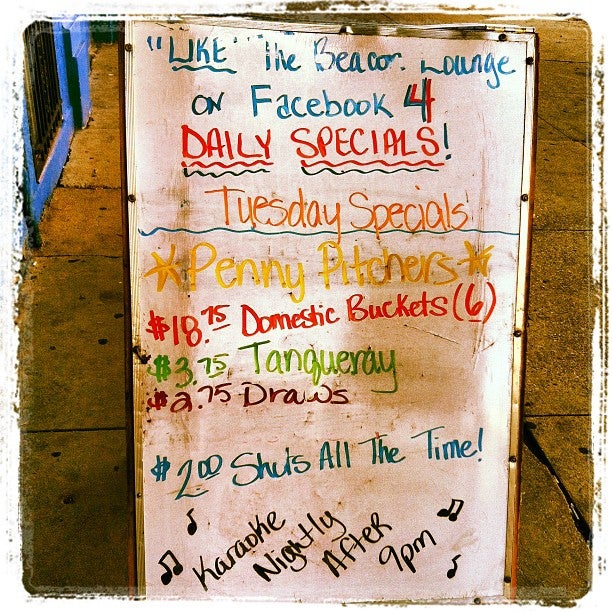 "LIKE" The Beacon Lounge
ON Facebook 4
DAILY SPECIALS!
Tuesday Specials
Penny Pitchers
$18.75 Domestic Buckets (6)
$3.75 Tanqueray
$2.75 Draws
$2.00 Shots All The Time!
Karaoke Nightly After 9pm